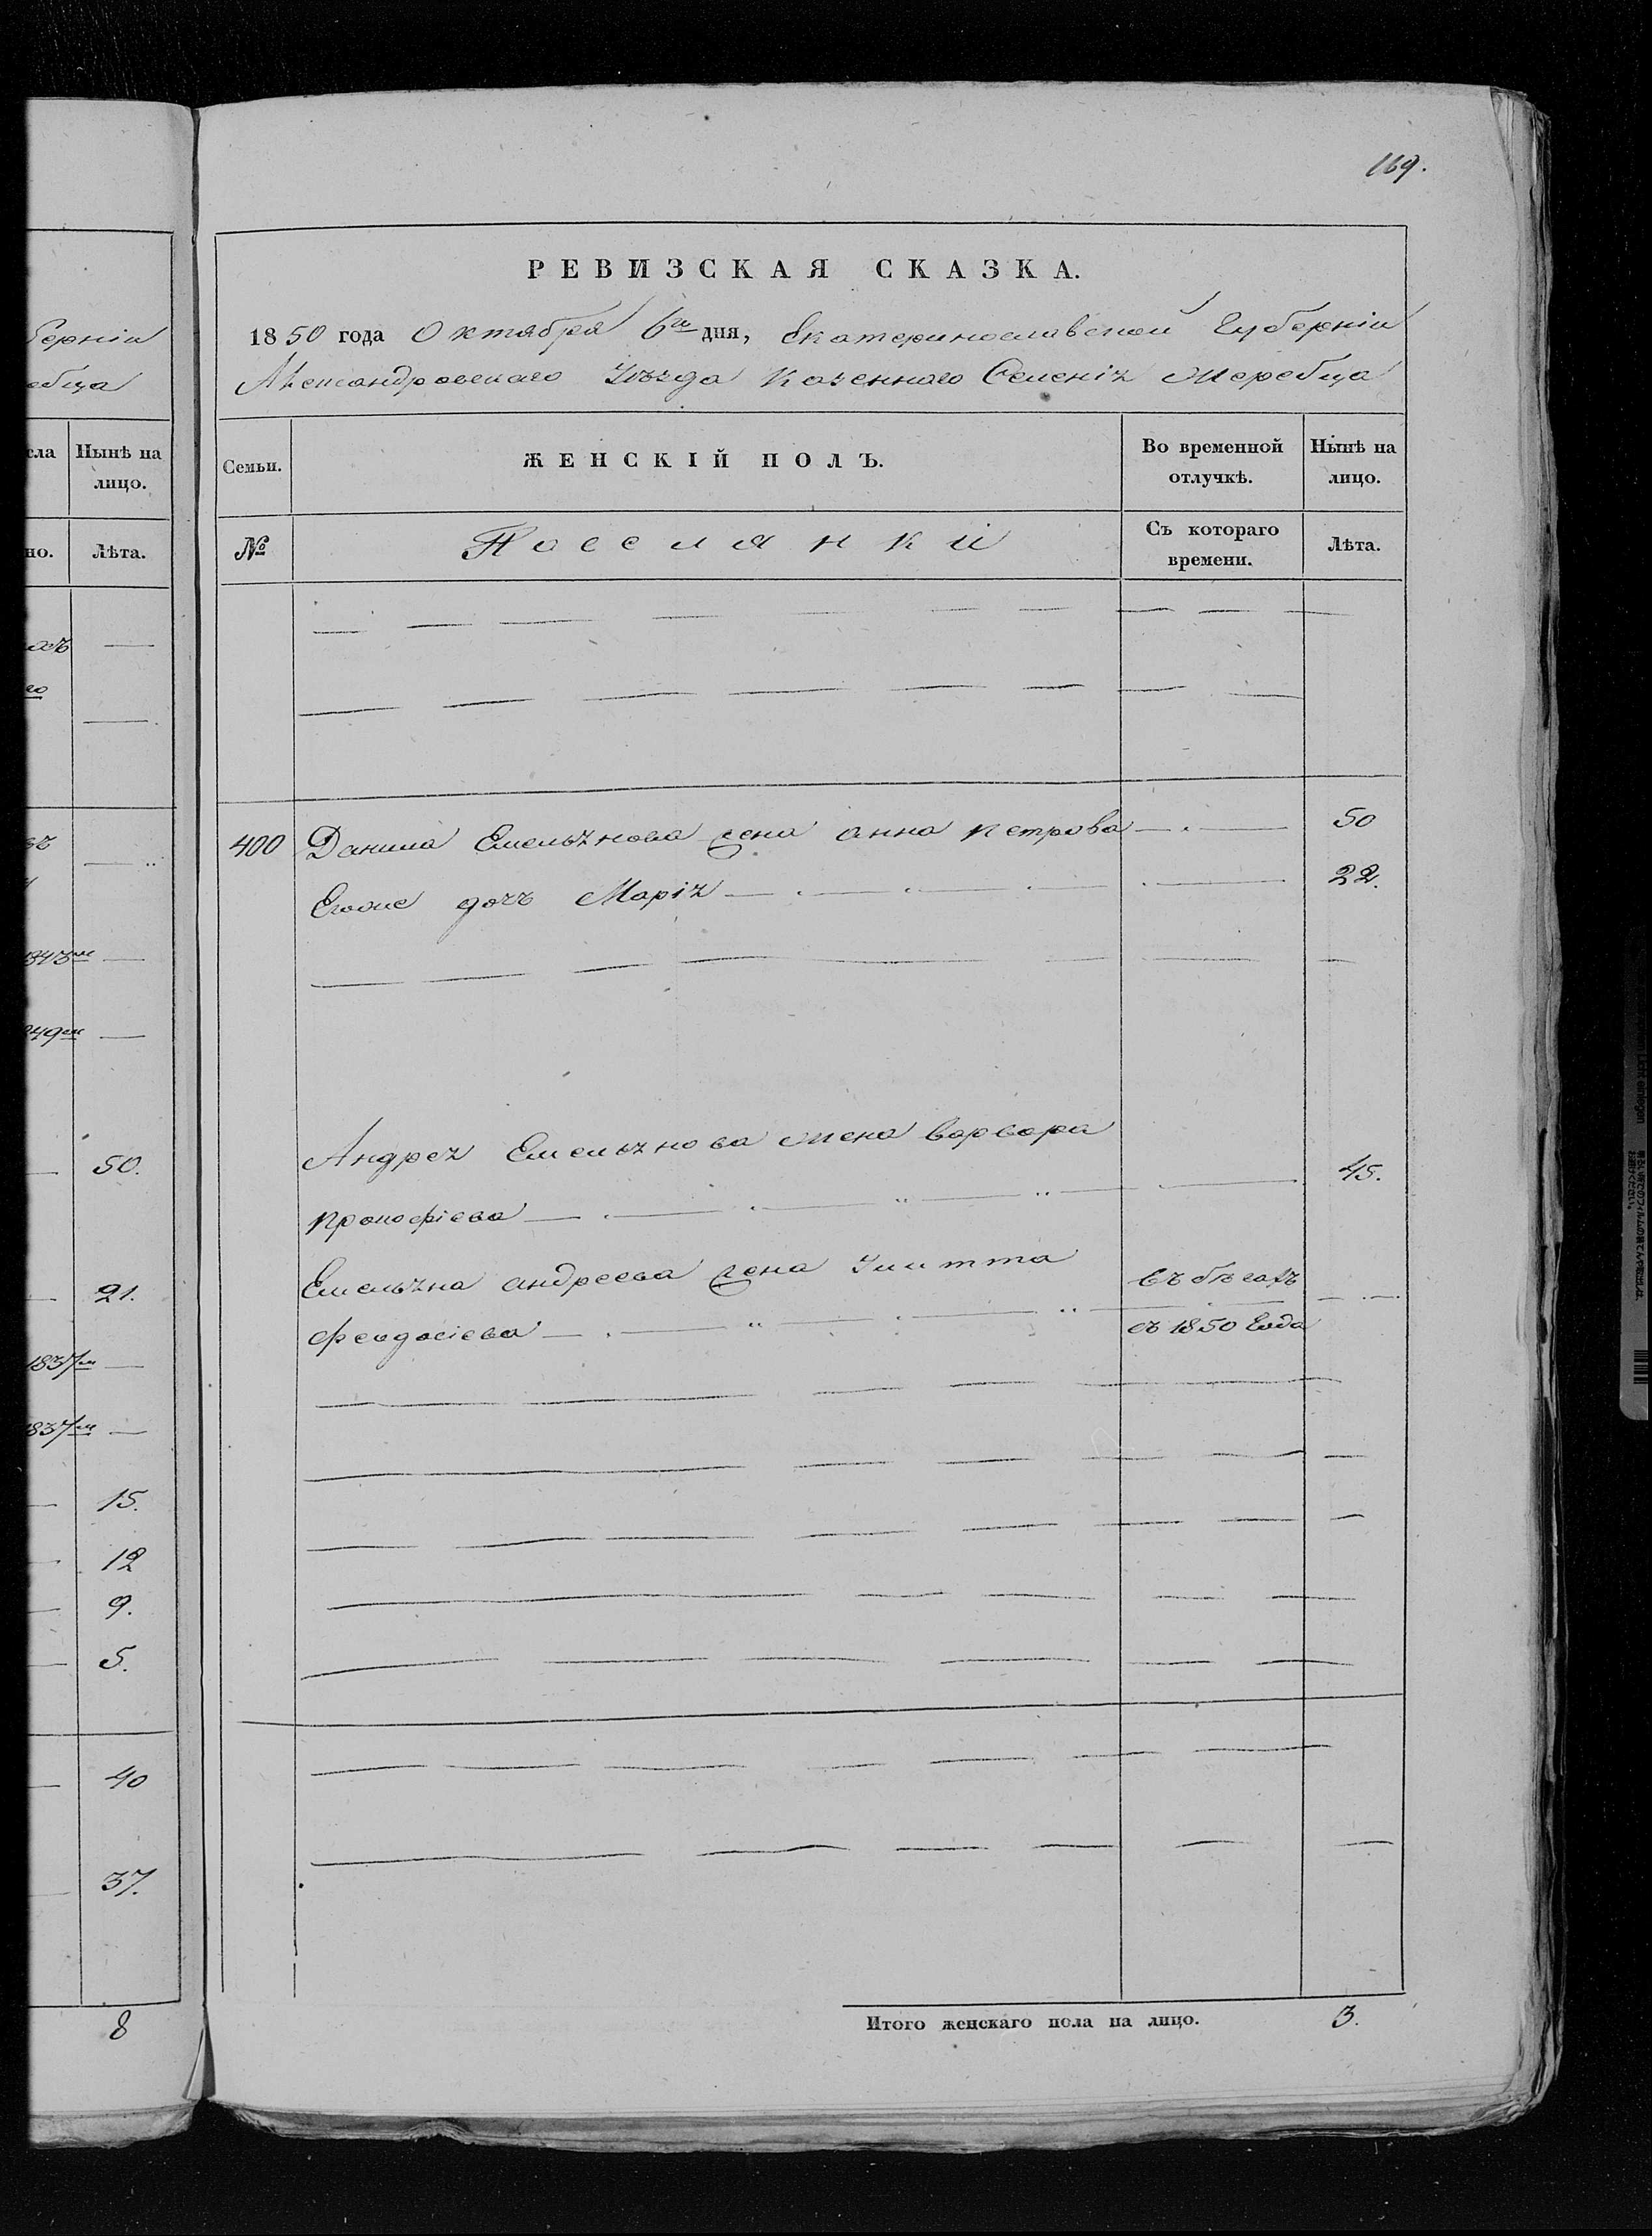 169.
РЕВИЗСКАЯ СКАЗКА.
1850 года Октября 6го дня, Екатеринославской Губерніи
Александровскаго Уѣзда Казеннаго Селенія Жеребца
Семьи.
ЖЕНСКІЙ ПОЛЪ.
Во временной отлучкѣ.
Нынѣ на лицо.
№
Поселянки
Съ котораго времени.
Лѣта.
400 Данила Емельянова жена анна петрова 50
Егоже дочъ Марія 22.
Андрея Емельянова жена варвара
прокофіева 45.
Емельяна андреева жена
феодосіева
въ бѣгахъ
съ 1850 Года
Итого женскаго пола на лицо. 3.
берніи
ебца
сла
Нынѣ на лицо.
но.
Лѣта.
го
50.
21.
1837м
1837м
15.
12
9.
5.
40
37.
8